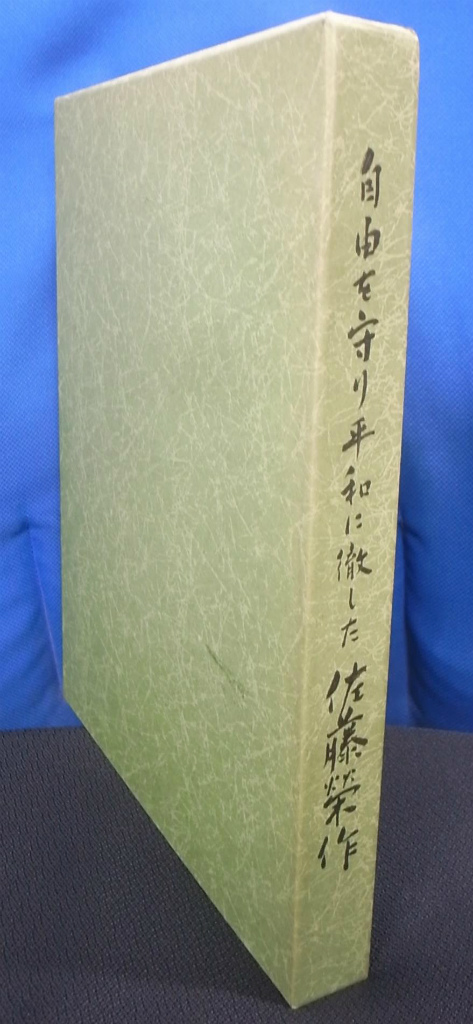 自由を守り平和に徹した佐藤榮作